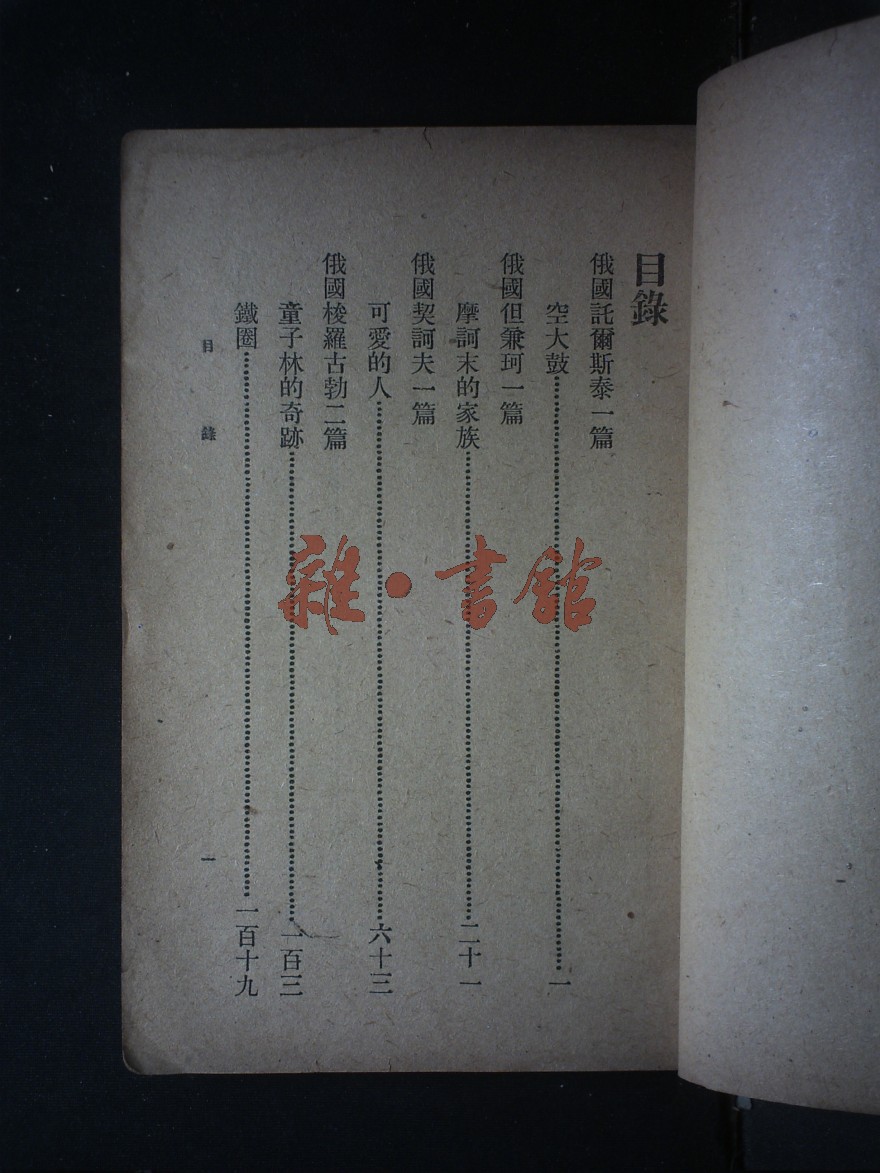 目錄
俄國託爾斯泰一篇
空大鼓……一
俄國但兼珂一篇
摩訶末的家族……二十一
俄國契訶夫一篇
可愛的人……六十三
俄國梭羅古勃二篇
童子林的奇跡……一百三
鐵圈……一百十九
目錄 一
雜·書館